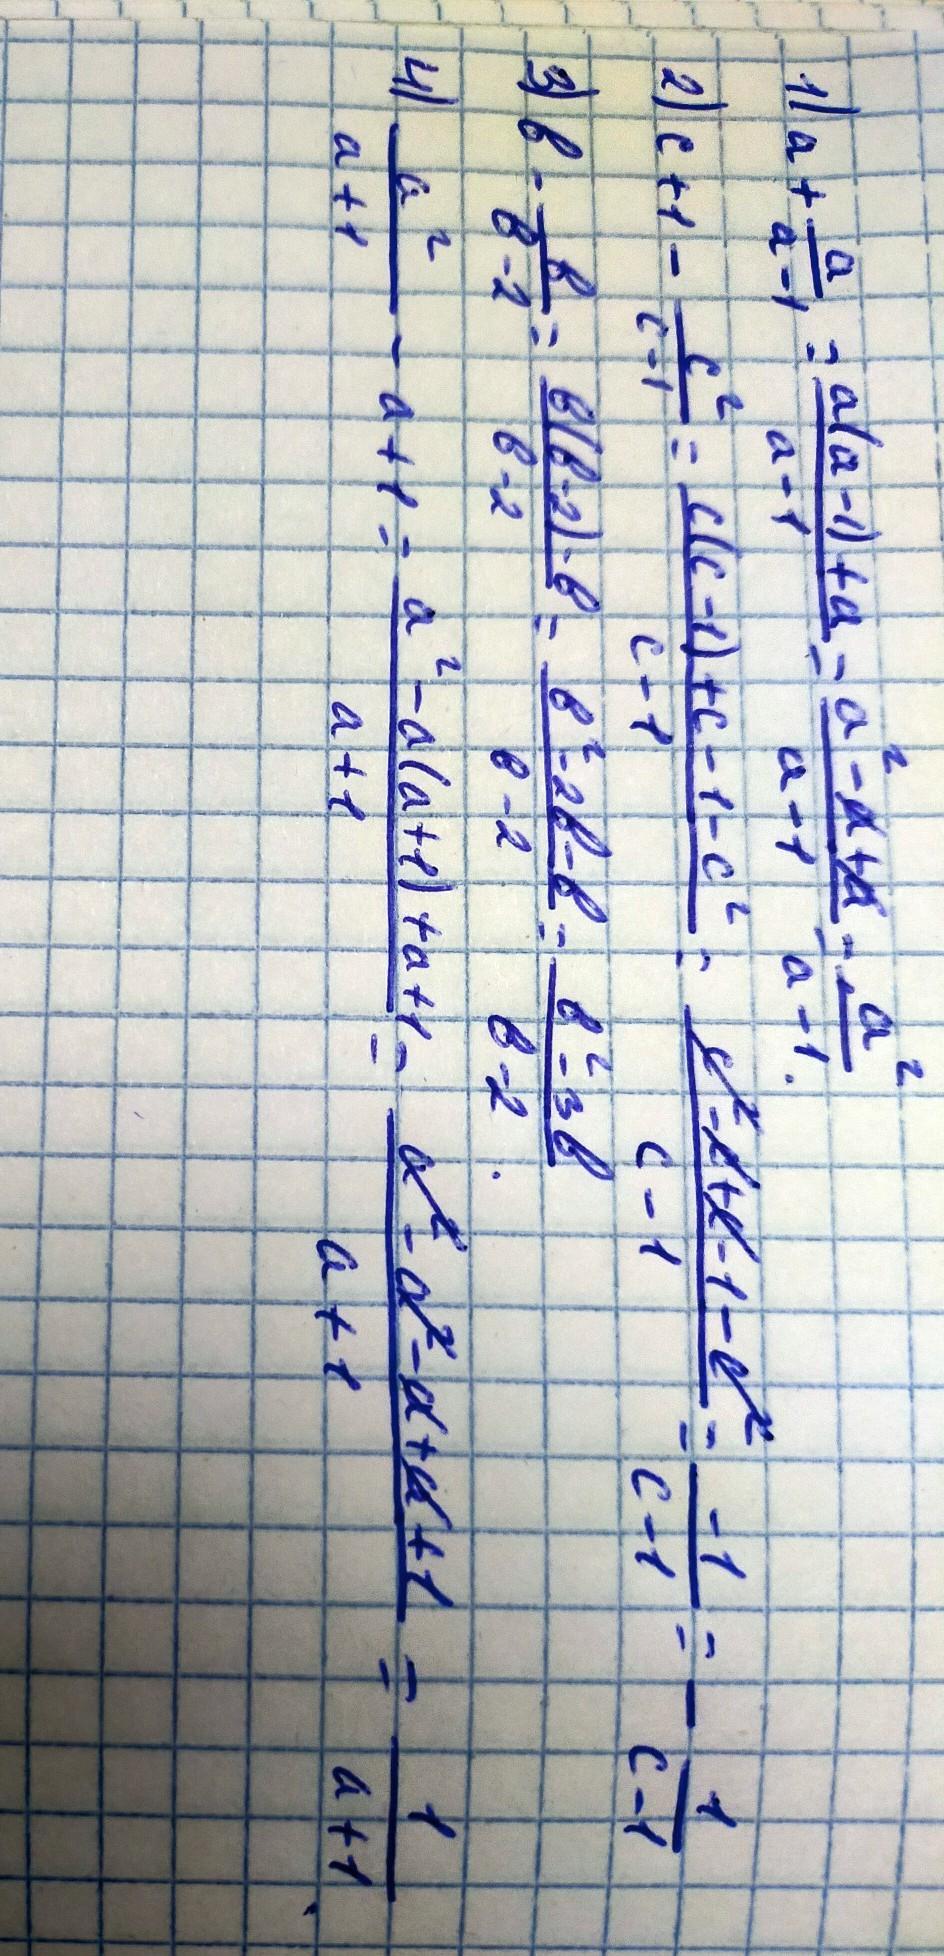 1) a + a/(a-1) = (a(a-1)+a)/(a-1) = (a²-a+a)/(a-1) = a²/(a-1).
2) c+1 - c²/(c-1) = (c(c-1)+c-1-c²)/(c-1) = (c²-c+c-1-c²)/(c-1) = -1/(c-1) = - 1/(c-1)
3) в - в/(в-2) = (в(в-2)-в)/(в-2) = (в²-2в-в)/(в-2) = (в²-3в)/(в-2).
4) a²/(a+1) - a+1 = (a²-a(a+1)+a+1)/(a+1) = (a²-a²-a+a+1)/(a+1) = 1/(a+1).